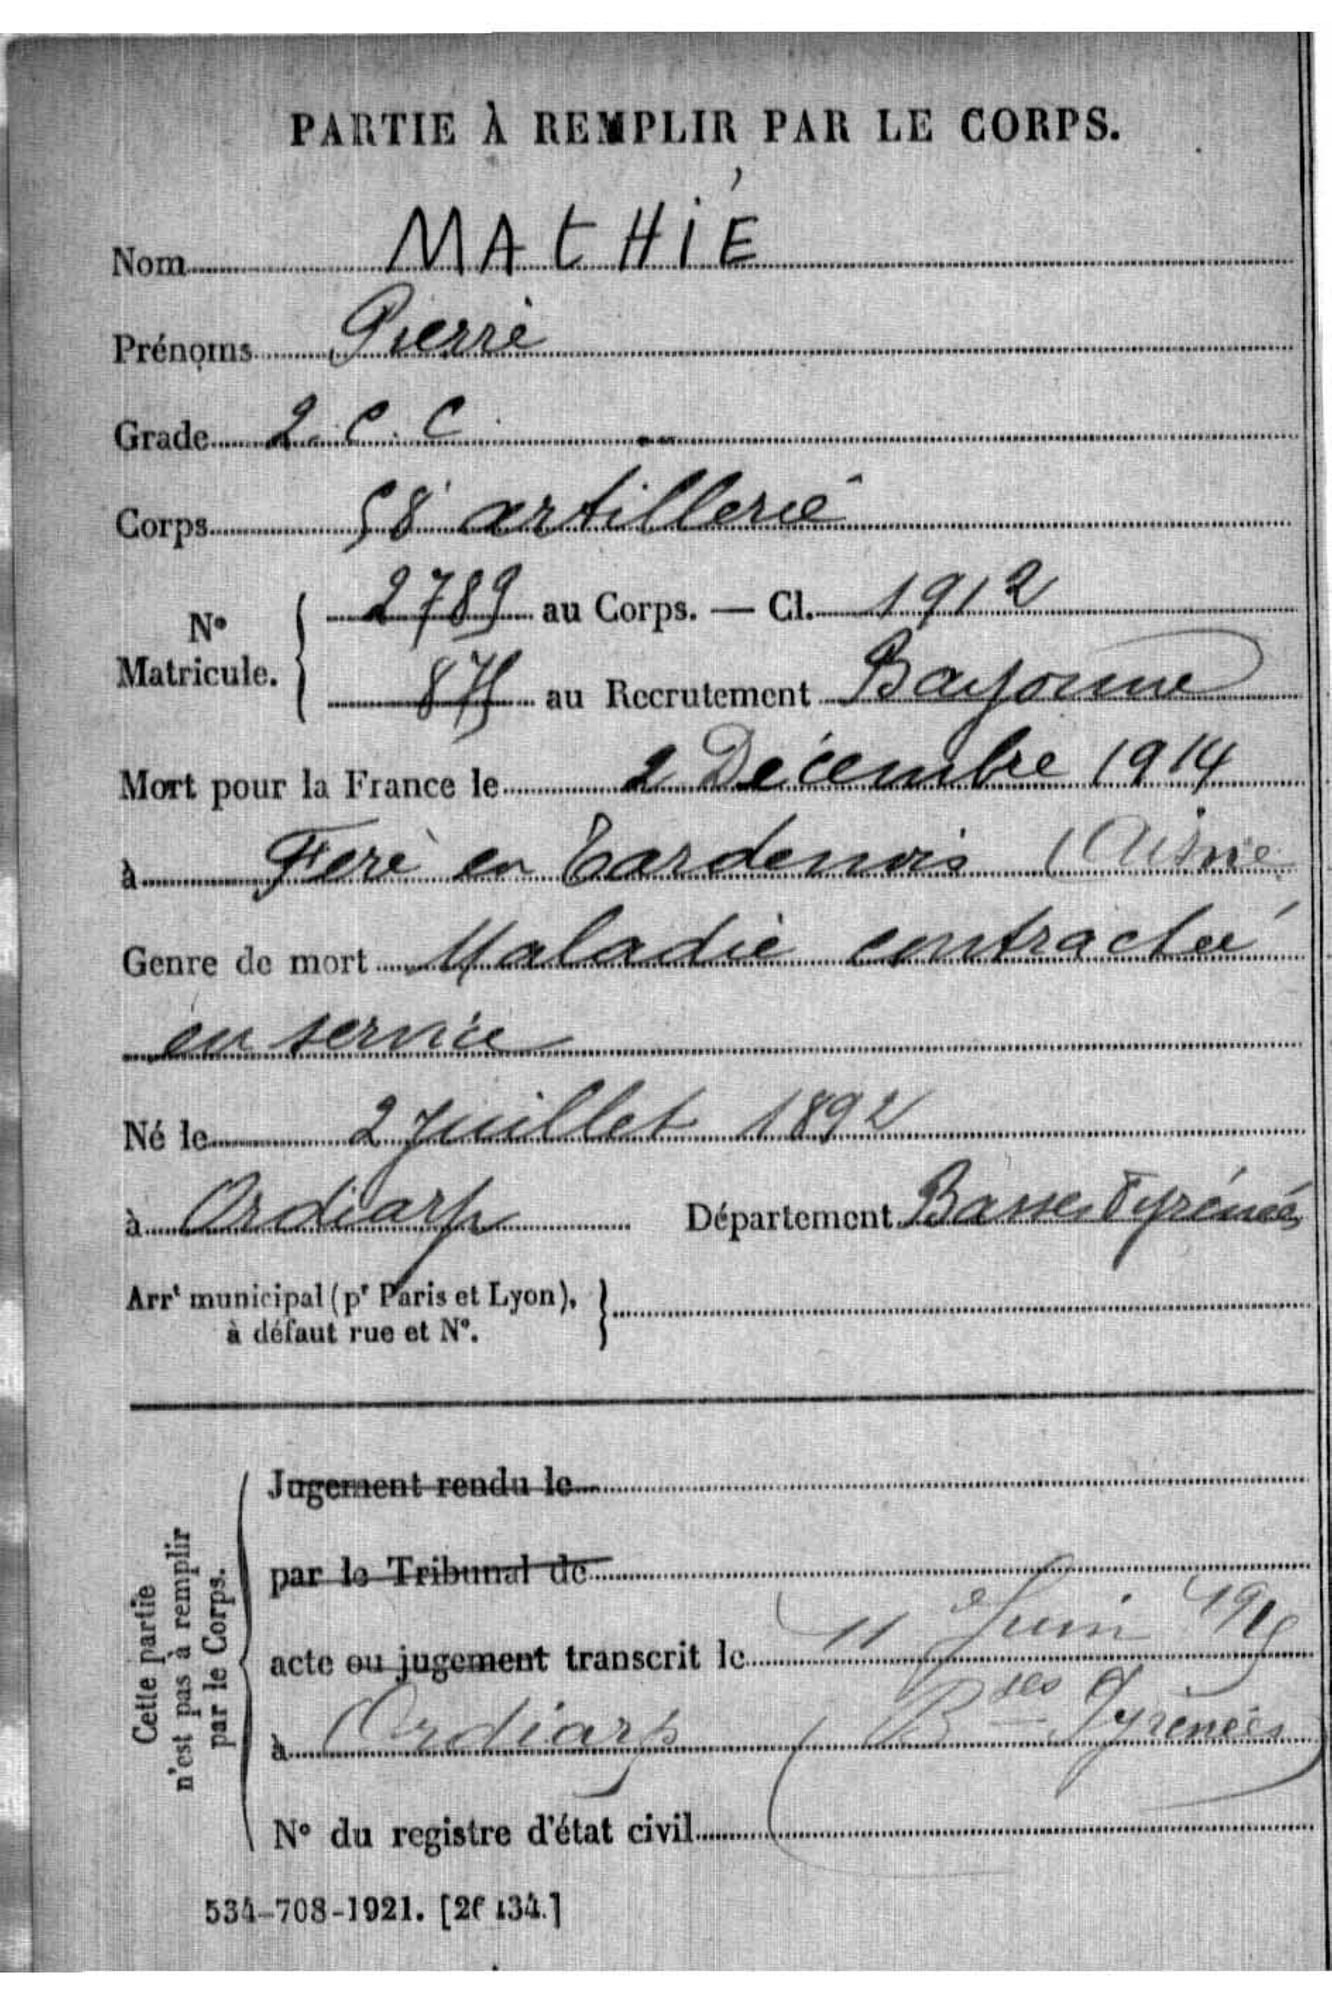 PARTIE À REMPLIR PAR LE CORPS.
Nom MATHIÉ
Prénoms Pierre
Grade 2. C. C.
Corps 58e artillerie
No Matricule. 2789 au Corps. — Cl. 1912
875 au Recrutement Bayonne
Mort pour la France le 2 Décembre 1914
à Fère en Tardenois (Aisne
Genre de mort Maladie contractée
en service
Né le 2 Juillet 1892
à Ordiarp Département Basses Pyrénées
Arrt municipal (pr Paris et Lyon),
à défaut rue et No.
Cette partie
n'est pas à remplir
par le Corps.
Jugement rendu le
par le Tribunal de
acte ou jugement transcrit le 11 Juin 1915
à Ordiarp (Bses Pyrénées)
No du registre d'état civil
534-708-1921. [26434.]